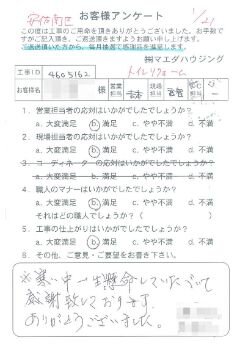 安佐南区 お客様アンケート 1/21
この度は工事のご用命を頂きありがとうございました。お手数で
すがご記入頂き、ご返送頂きますようお願い申し上げます。
ご返送頂いた方から、毎月抽選で感謝品を進呈します。
㈱マエダハウジング
工事ID 4605162 トイレリフォーム
お客様名 様 営業担当 現場担当
1. 営業担当者の応対はいかがでしたでしょうか?
a. 大変満足 b. 満足 c. やや不満 d. 不満
2. 現場担当者の応対はいかがでしたでしょうか?
a. 大変満足 b. 満足 c. やや不満 d. 不満
3. コーディネーターの応対はいかがでしたでしょうか?
a. 大変満足 b. 満足 c. やや不満 d. 不満
4. 職人のマナーはいかがでしたでしょうか?
a. 大変満足 b. 満足 c. やや不満 d. 不満
それはどの職人でしょうか? ( )
5. 工事の仕上がりはいかがでしたでしょうか?
a. 大変満足 b. 満足 c. やや不満 d. 不満
6. その他、ご意見・ご要望をお書き下さい。
※寒い中一生懸命していただいて
感謝致しております。
ありがとうございました。